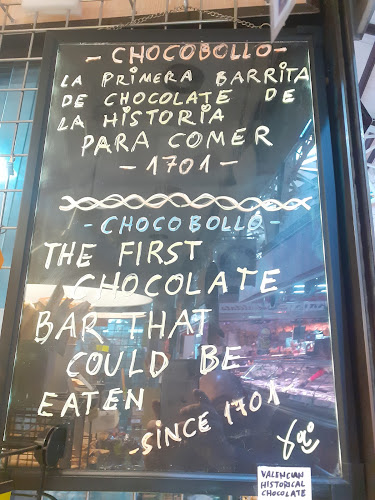 - CHOCOBOLLO -
LA PRIMERA BARRITA
DE CHOCOLATE DE
LA HISTORIA
PARA COMER
- 1701 -
- CHOCOBOLLO -
THE FIRST
CHOCOLATE
BAR THAT
COULD BE
EATEN
- SINCE 1701
VALENCIAN
HISTORICAL
CHOCOLATE